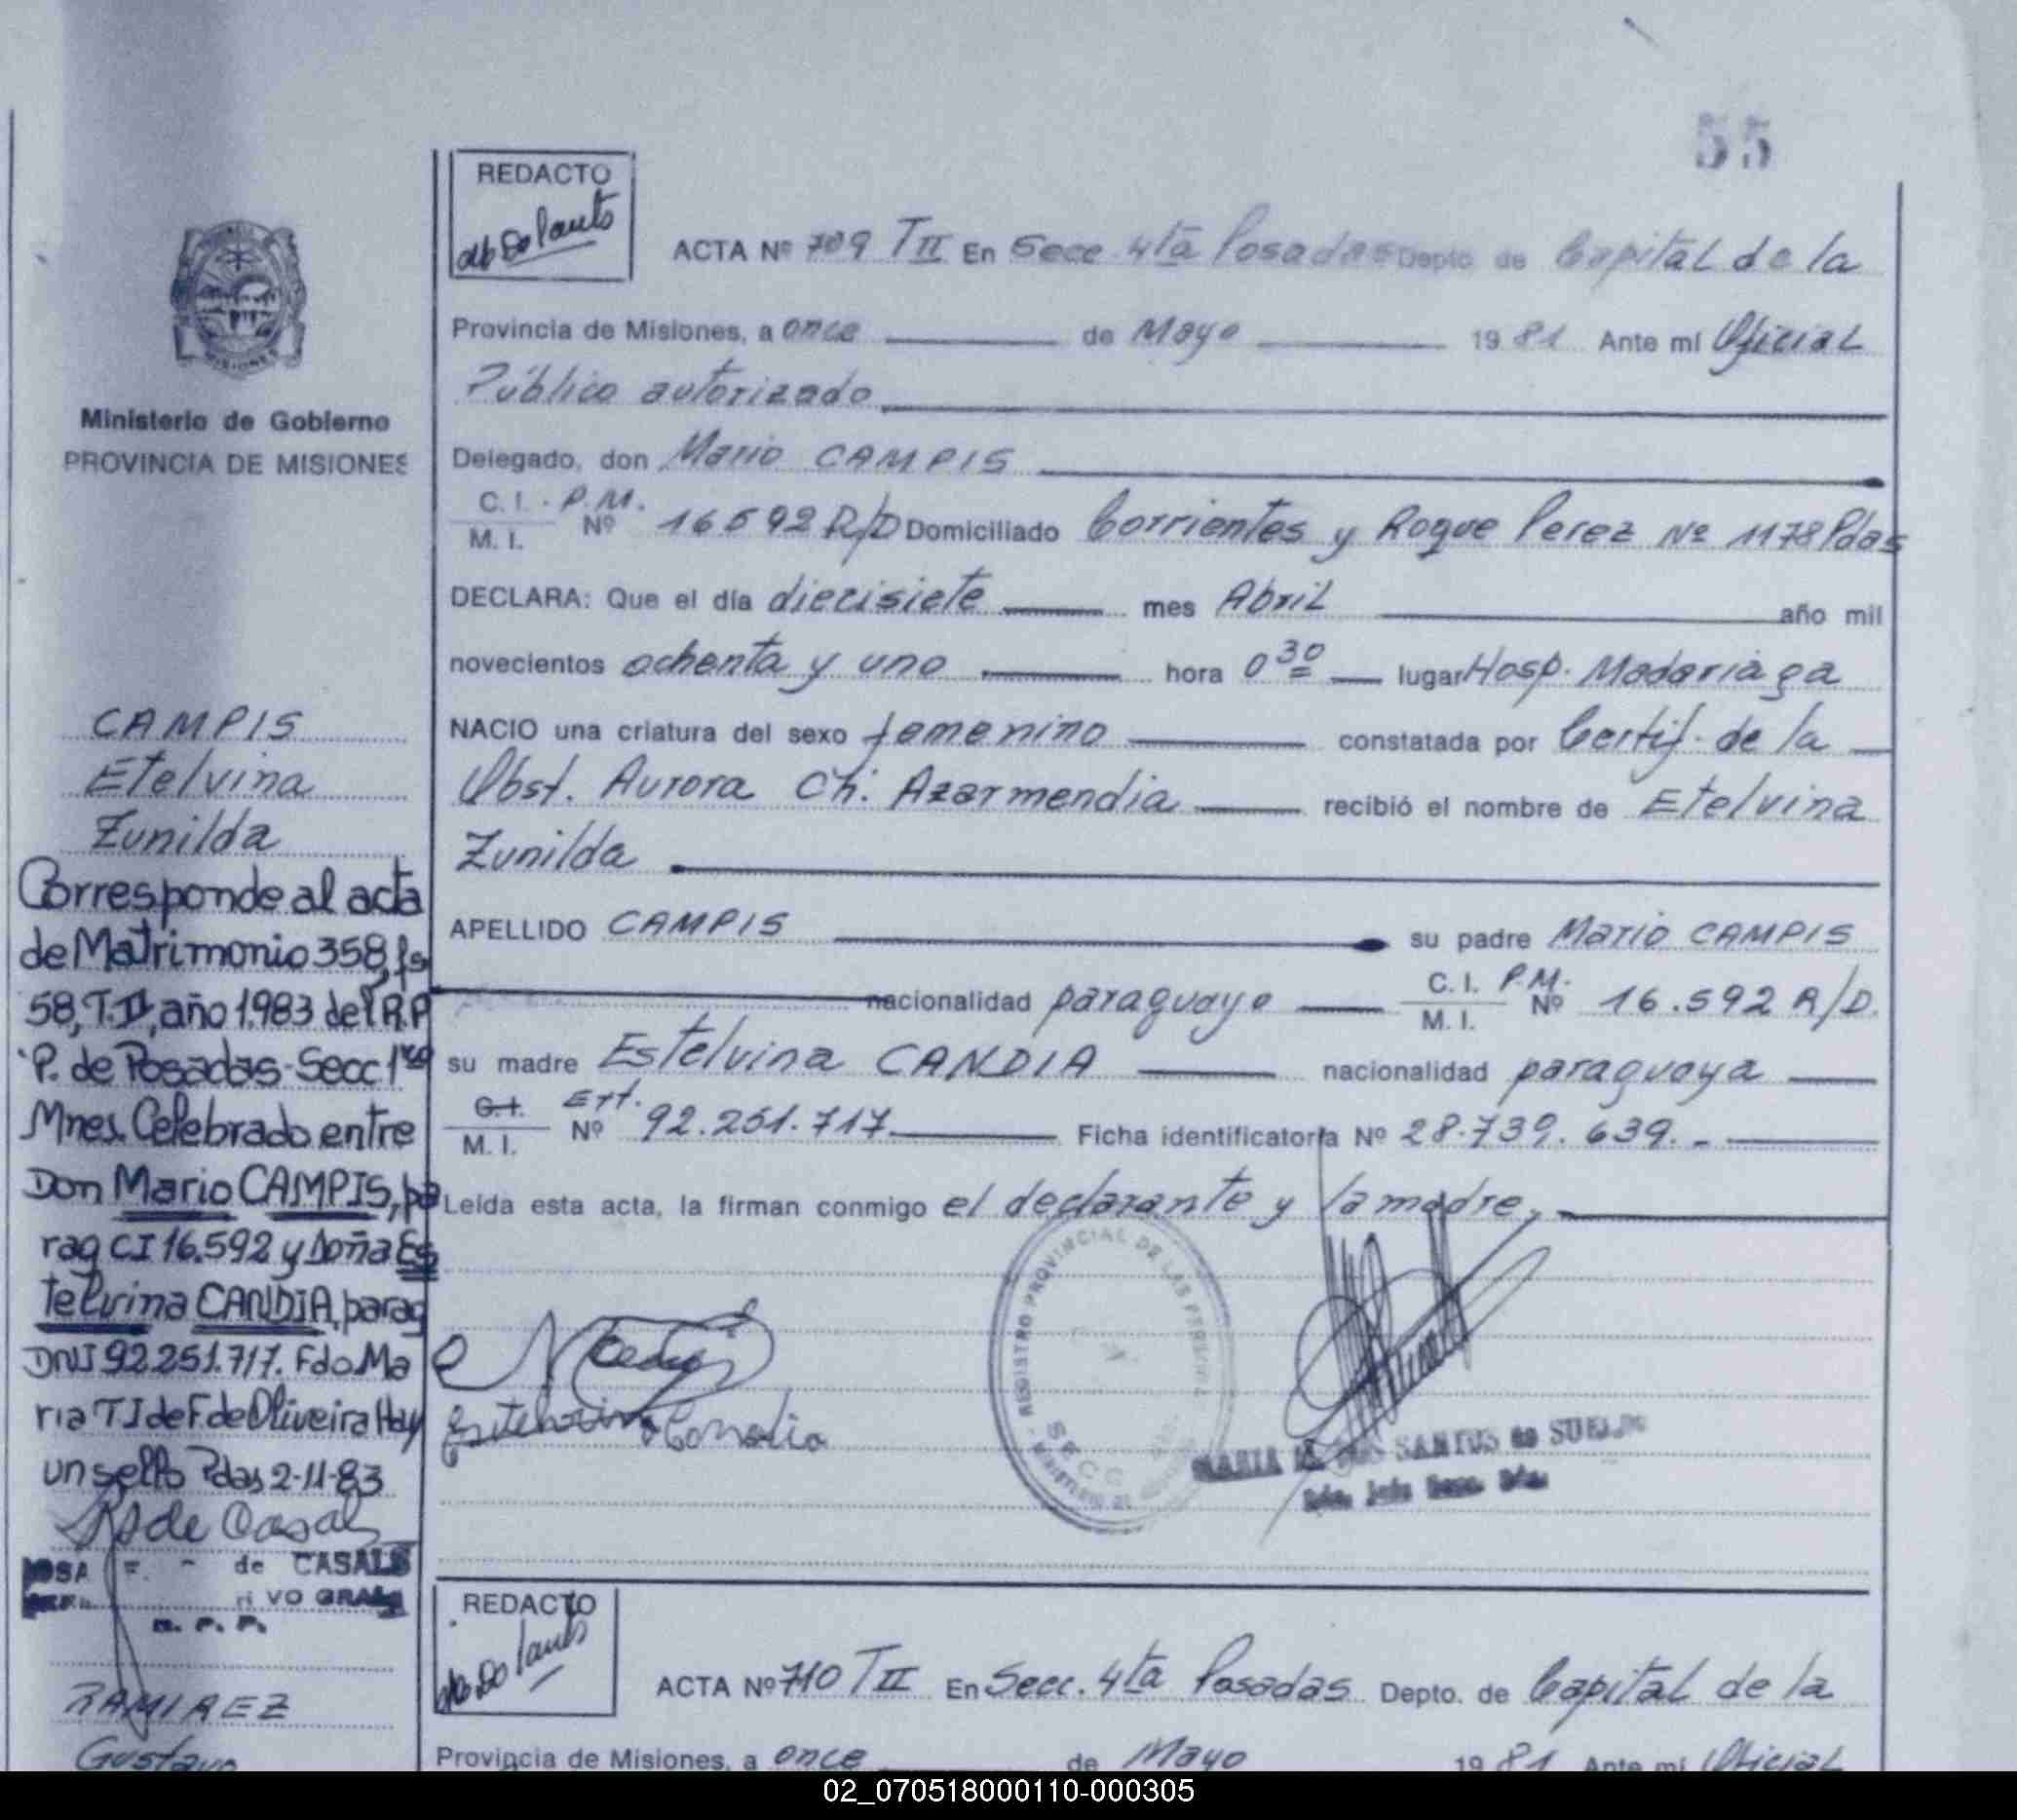 55
REDACTO
ACTA Nº 709 TII En Secc 4ta Posadas Depto de Capital de la
Provincia de Misiones, a once de Mayo 1981 Ante mí Oficial
Público autorizado
Delegado, don Mario CAMPIS
C. I. P.M.
M. I. Nº 16592 R/D Domiciliado Corrientes y Roque Perez Nº 1178 Pdas
DECLARA: Que el día diecisiete mes Abril año mil
novecientos ochenta y uno hora 0 30 lugar Hosp. Madariaga
NACIO una criatura del sexo femenino constatada por Certif. de la
Obst. Aurora Ch. Azarmendia recibió el nombre de Etelvina
Zunilda
APELLIDO CAMPIS su padre Mario CAMPIS
nacionalidad paraguayo C. I. P.M. M. I. Nº 16.592 R/D.
su madre Estelvina CANDIA nacionalidad paraguaya
C.I. Ext.
M. I. Nº 92.251.717 Ficha identificatoria Nº 28.739.639.-
Leída esta acta, la firman conmigo el declarante y la madre,
Estelvina Candia
REGISTRO PROVINCIAL DE LAS PERSONAS
SECC
MARIA DOS SANTOS de SUELDO
MISIONES
Ministerio de Gobierno
PROVINCIA DE MISIONES
CAMPIS
Etelvina
Zunilda
Corresponde al acta
de Matrimonio 358, fs
58, T.II, año 1.983 del R.P
P. de Posadas-Secc 1ra
Mnes. Celebrado entre
Don Mario CAMPIS, pa
rag CI 16.592 y Doña Es
telvina CANDIA, parag
DNI 92.251.717. Fdo. Ma
ria T J de F. de Oliveira Hay
un sello Pdas 2-11-83
de Casals
de CASALS
R. P. P.
RAMIREZ
Gustavo
REDACTO
ACTA Nº 710 TII En Secc. 4ta Posadas Depto. de Capital de la
Provincia de Misiones, a once de Mayo 1981 Ante mí Oficial
02_070518000110-000305